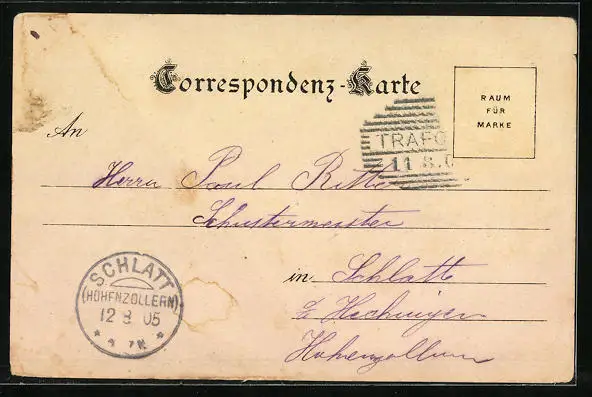 Correspondenz-Karte
RAUM
FÜR
MARKE
TRAFO
11.8.0
An
Herrn Paul Ritter
Schustermeister
in Schlatt
b. Hechingen
Hohenzollern
SCHLATT
(HOHENZOLLERN)
12 8 05
* 4-7N *